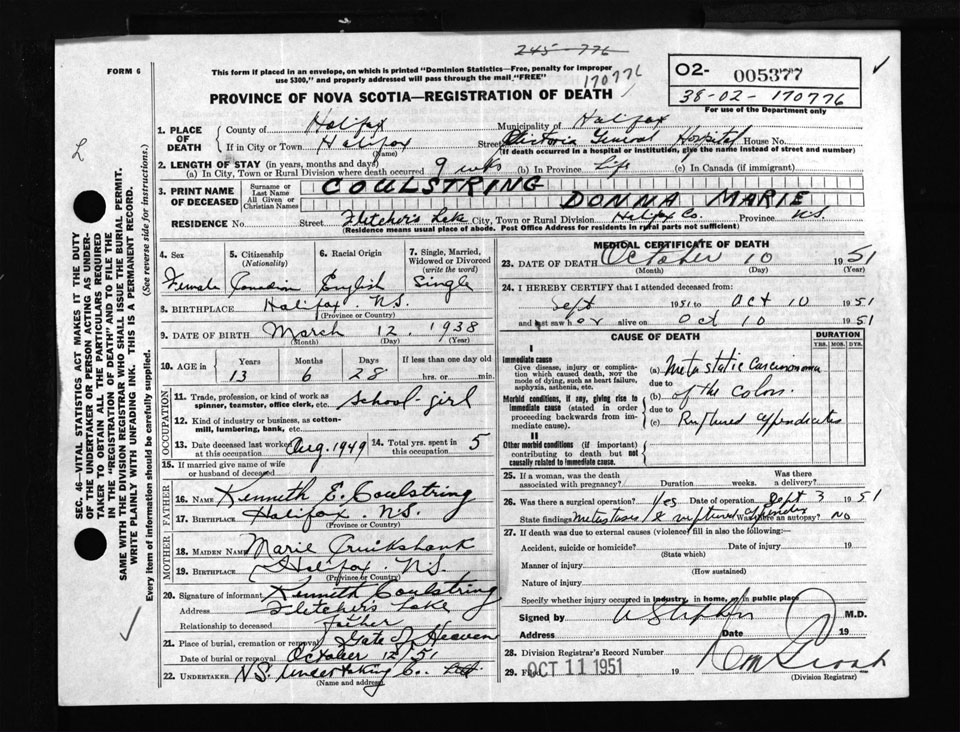 245-776
FORM 6
This form if placed in an envelope, on which is printed "Dominion Statistics—Free, penalty for improper
use $300," and properly addressed will pass through the mail "FREE"
170776
O2- 005377
38-02-170776
For use of the Department only
PROVINCE OF NOVA SCOTIA—REGISTRATION OF DEATH
SEC. 46—VITAL STATISTICS ACT MAKES IT THE DUTY
OF THE UNDERTAKER OR PERSON ACTING AS UNDER-
TAKER TO OBTAIN ALL THE PARTICULARS REQUIRED
IN THE "REGISTRATION OF DEATH" AND TO FILE THE
SAME WITH THE DIVISION REGISTRAR WHO SHALL ISSUE THE BURIAL PERMIT.
WRITE PLAINLY WITH UNFADING INK. THIS IS A PERMANENT RECORD.
Every item of information should be carefully supplied. (See reverse side for instructions.)
1. PLACE OF DEATH
County of Halifax Municipality of Halifax
If in City or Town Halifax (Name) Street Victoria General Hospital House No.
(If death occurred in a hospital or institution, give the name instead of street and number)
2. LENGTH OF STAY (in years, months and days)
(a) In City, Town or Rural Division where death occurred 9 wks (b) In Province Life (c) In Canada (if immigrant)
3. PRINT NAME OF DECEASED
Surname or Last Name COULSTRING
All Given or Christian Names DONNA MARIE
RESIDENCE No. Street Fletcher's Lake City, Town or Rural Division Halifax Co. Province N.S.
(Residence means usual place of abode. Post Office Address for residents in rural parts not sufficient)
4. Sex Female
5. Citizenship (Nationality) Canadian
6. Racial Origin English
7. Single, Married, Widowed or Divorced (write the word) Single
8. BIRTHPLACE Halifax N.S.
(Province or Country)
9. DATE OF BIRTH March 12, 1938
(Month) (Day) (Year)
10. AGE in Years 13 Months 6 Days 28 If less than one day hrs. or min.
OCCUPATION
11. Trade, profession, or kind of work as spinner, teamster, office clerk, etc. School girl
12. Kind of industry or business, as cotton-mill, lumbering, bank, etc.
13. Date deceased last worked at this occupation Aug. 1949 14. Total yrs. spent in 5
15. If married give name of wife or husband of deceased
FATHER
16. NAME Kenneth E. Coulstring
17. BIRTHPLACE Halifax N.S.
(Province or Country)
MOTHER
18. MAIDEN NAME Marie Cruikshank
19. BIRTHPLACE Halifax N.S.
(Province or Country)
20. Signature of informant Kenneth Coulstring
Address Fletcher's Lake
Relationship to deceased Father
21. Place of burial, cremation or removal Gate of Heaven
Date of burial or removal October 12 '51
22. UNDERTAKER N.S. Undertaking Co. Ltd.
(Name and address)
MEDICAL CERTIFICATE OF DEATH
23. DATE OF DEATH October 10 1951
(Month) (Day) (Year)
24. I HEREBY CERTIFY that I attended deceased from:
Sept 1951 to Oct 10 1951
and last saw her alive on Oct 10 1951
CAUSE OF DEATH
DURATION
YRS. MOS. DYS.
I
Immediate cause
Give disease, injury or complication which caused death, NOT the mode of dying, such as heart failure, asphyxia, asthenia, etc.
(a) Metastatic Carcinoma
due to
Morbid conditions, if any, giving rise to immediate cause (stated in order proceeding backwards from immediate cause).
(b) of the colon
due to
(c) Ruptured appendicitis
II
Other morbid conditions (if important) contributing to death but not causally related to immediate cause.
25. If a woman, was the death associated with pregnancy? Duration weeks. Was there a delivery?
26. Was there a surgical operation? Yes Date of operation Sept 3 1951
State findings Metastases & ruptured appendix Was there an autopsy? No
27. If death was due to external causes (violence) fill in also the following:—
Accident, suicide or homicide? Date of injury 19
(State which)
Manner of injury
(How sustained)
Nature of injury
Specify whether injury occurred in industry, in home, or in public place
Signed by M.D.
Address Date 19
28. Division Registrar's Record Number
29. OCT 11 1951 19
(Division Registrar)